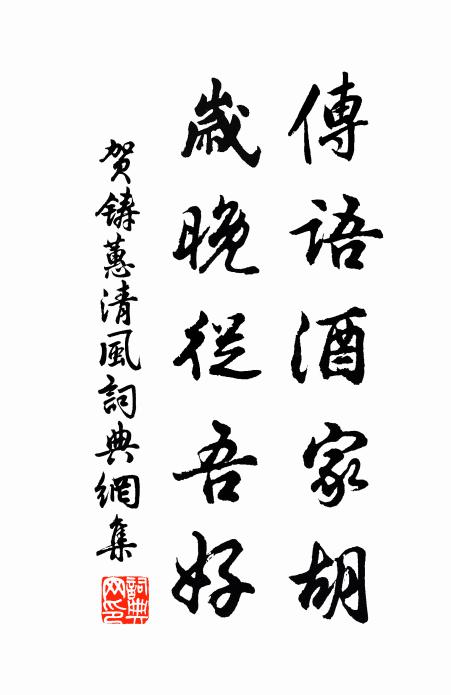 傳語酒家胡
歲晚從吾好
贺鑄蕙清風詞典網集